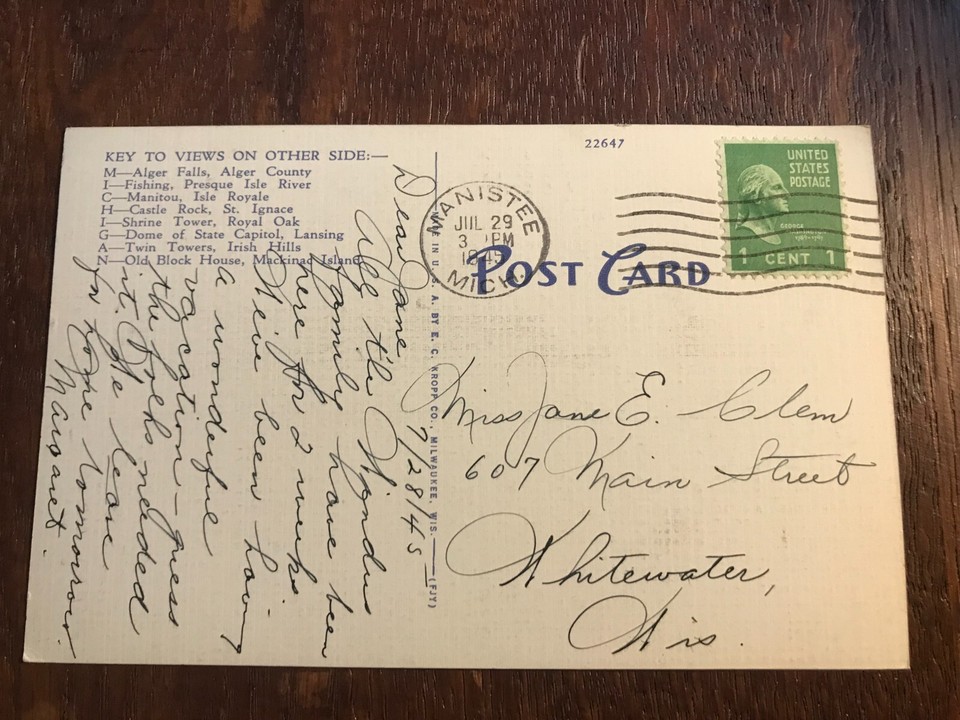 KEY TO VIEWS ON OTHER SIDE:—
M—Alger Falls, Alger County
I—Fishing, Presque Isle River
C—Manitou, Isle Royale
H—Castle Rock, St. Ignace
I—Shrine Tower, Royal Oak
G—Dome of State Capitol, Lansing
A—Twin Towers, Irish Hills
N—Old Block House, Mackinac Island
22647
MANISTEE
JUL 29
3 PM
1945
MICH.
UNITED
STATES
POSTAGE
GEORGE
WASHINGTON
1 CENT 1
POST CARD
MADE IN U. S. A. BY E. C. KROPP CO., MILWAUKEE, WIS. (FJY)
Dear Jane 7/28/45
All the
family have been
here for 2 weeks
We've been having
a wonderful
vacation - guess
the folks needed
it. We leave
for home tomorrow.
Margaret.
Miss Jane E. Clem
607 Main Street
Whitewater,
Wis.